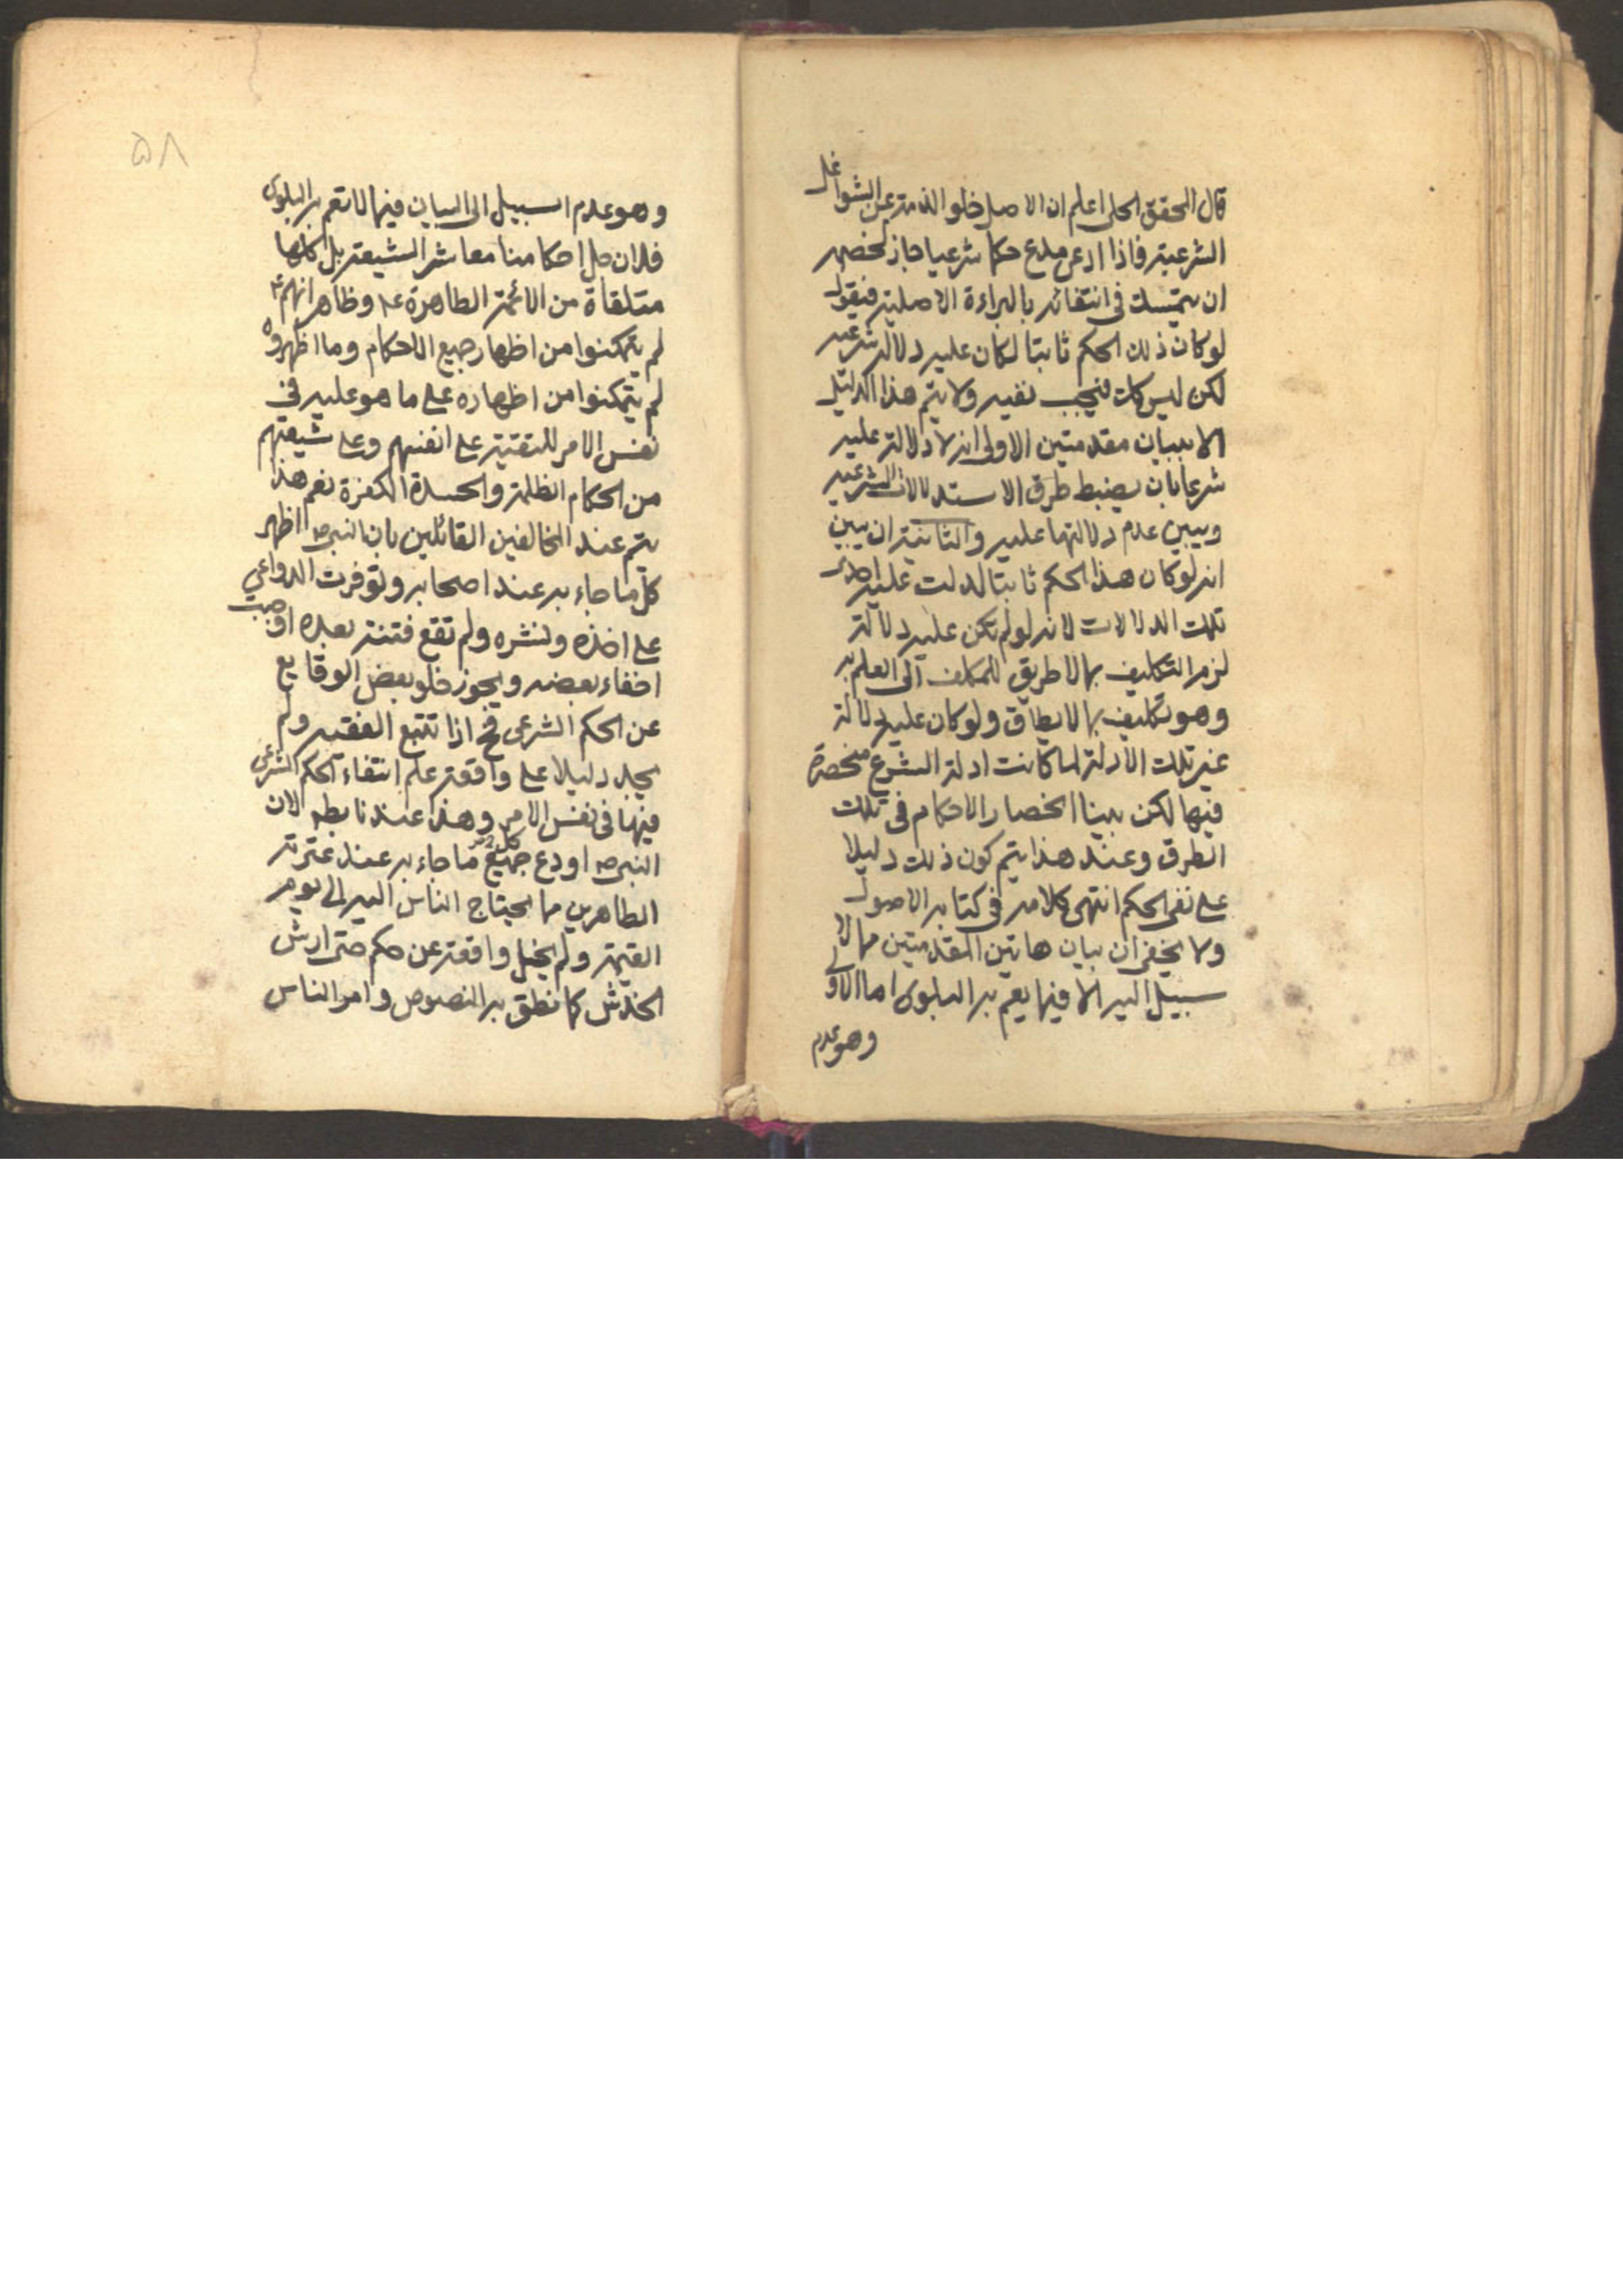 قال المحقق الحلى اعلم ان الاصل خلو الذمة عن الشواغل
الشرعية فاذا ادعى مدع حكما شرعيا جاز لخصمه
ان يتمسك فى انتفائه بالبراءة الاصلية فيقول
لو كان ذلك الحكم ثابتا لكان عليه دلالة شرعية
لكن ليس كك فيجب نفيه ولا يتم هذا الدليل
الا ببيان مقدمتين الاولى انه لا دلالة عليه
شرعا بان يضبط طرق الاستدلالات الشرعية
ويبين عدم دلالتها عليه والثانية ان يبين
انه لو كان هذا الحكم ثابتا لدلت عليه احدى
تلك الدلالات لانه لو لم تكن عليه دلالة
لزم التكليف بما لا طريق للمكلف الى العلم به
وهو تكليف بما لا يطاق ولو كان عليه دلالة
غير تلك الادلة لما كانت ادلة الشرع منحصرة
فيها لكن بينا انحصار الاحكام فى تلك
الطرق وعند هذا يتم كون ذلك دليلا
على نفى الحكم انتهى كلامه فى كتابه الاصول
ولا يخفى ان بيان هاتين المقدمتين مما لا
سبيل اليه الا فيما يعم به البلوى اما الاولى
وهو عدم
۵۸
وهو عدم السبيل الى البيان فيما لا تعم به البلوى
فلان جل احكامنا معاشر الشيعة بل كلها
متلقاة من الائمة الطاهرة ع وظاهر انهم ع
لم يتمكنوا من اظهار جميع الاحكام وما اظهروه
لم يتمكنوا من اظهاره على ما هو عليه فى
نفس الامر للتقية على انفسهم وعلى شيعتهم
من الحكام الظلمة والحسدة الكفرة نعم هذا
يتم عند المخالفين القائلين بان النبى ص اظهر
كل ما جاء به عند اصحابه وتوفرت الدواعى
على اخذه ونشره ولم تقع فتنة بعده اوجبت
اخفاء بعضه ويجوز خلو بعض الوقايع
عن الحكم الشرعى فح اذا تتبع الفقيه ولم
يجد دليلا على واقعة علم انتفاء الحكم الشرعى
فيها فى نفس الامر وهذا عندنا بط لان
النبى ص اودع جميع ما جاء به عند عترته
الطاهرين مما يحتاج الناس اليه الى يوم
القيمة ولم يخل واقعة عن حكم حتى ارش
الخدش كما نطق به النصوص وامر الناس